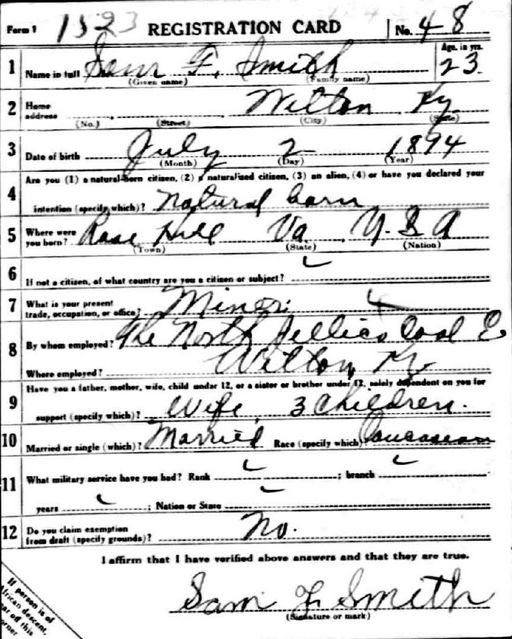 Form 1 1523 REGISTRATION CARD No. 48
1 Name in full Sam F. Smith Age, in yrs. 23
(Given name) (Family name)
2 Home address Wilton Ky
(No.) (Street) (City) (State)
3 Date of birth July 2 1894
(Month) (Day) (Year)
Are you (1) a natural-born citizen, (2) a naturalized citizen, (3) an alien, (4) or have you declared your
4 intention (specify which)? Natural born
5 Where were you born? Rose Hill Va. U.S.A
(Town) (State) (Nation)
6 If not a citizen, of what country are you a citizen or subject?
7 What is your present trade, occupation, or office? Miner
8 By whom employed? The North Jellico Coal
Where employed? Wilton, Ky
Have you a father, mother, wife, child under 12, or a sister or brother under 12, solely dependent on you for
9 support (specify which)? Wife, 3 Children.
10 Married or single (which)? Married Race (specify which)? Caucasian
11 What military service have you had? Rank ; branch
years ; Nation or State
12 Do you claim exemption from draft (specify grounds)? No.
I affirm that I have verified above answers and that they are true.
Sam F Smith
(Signature or mark)
If person is of
African descent,
tear off this
corner